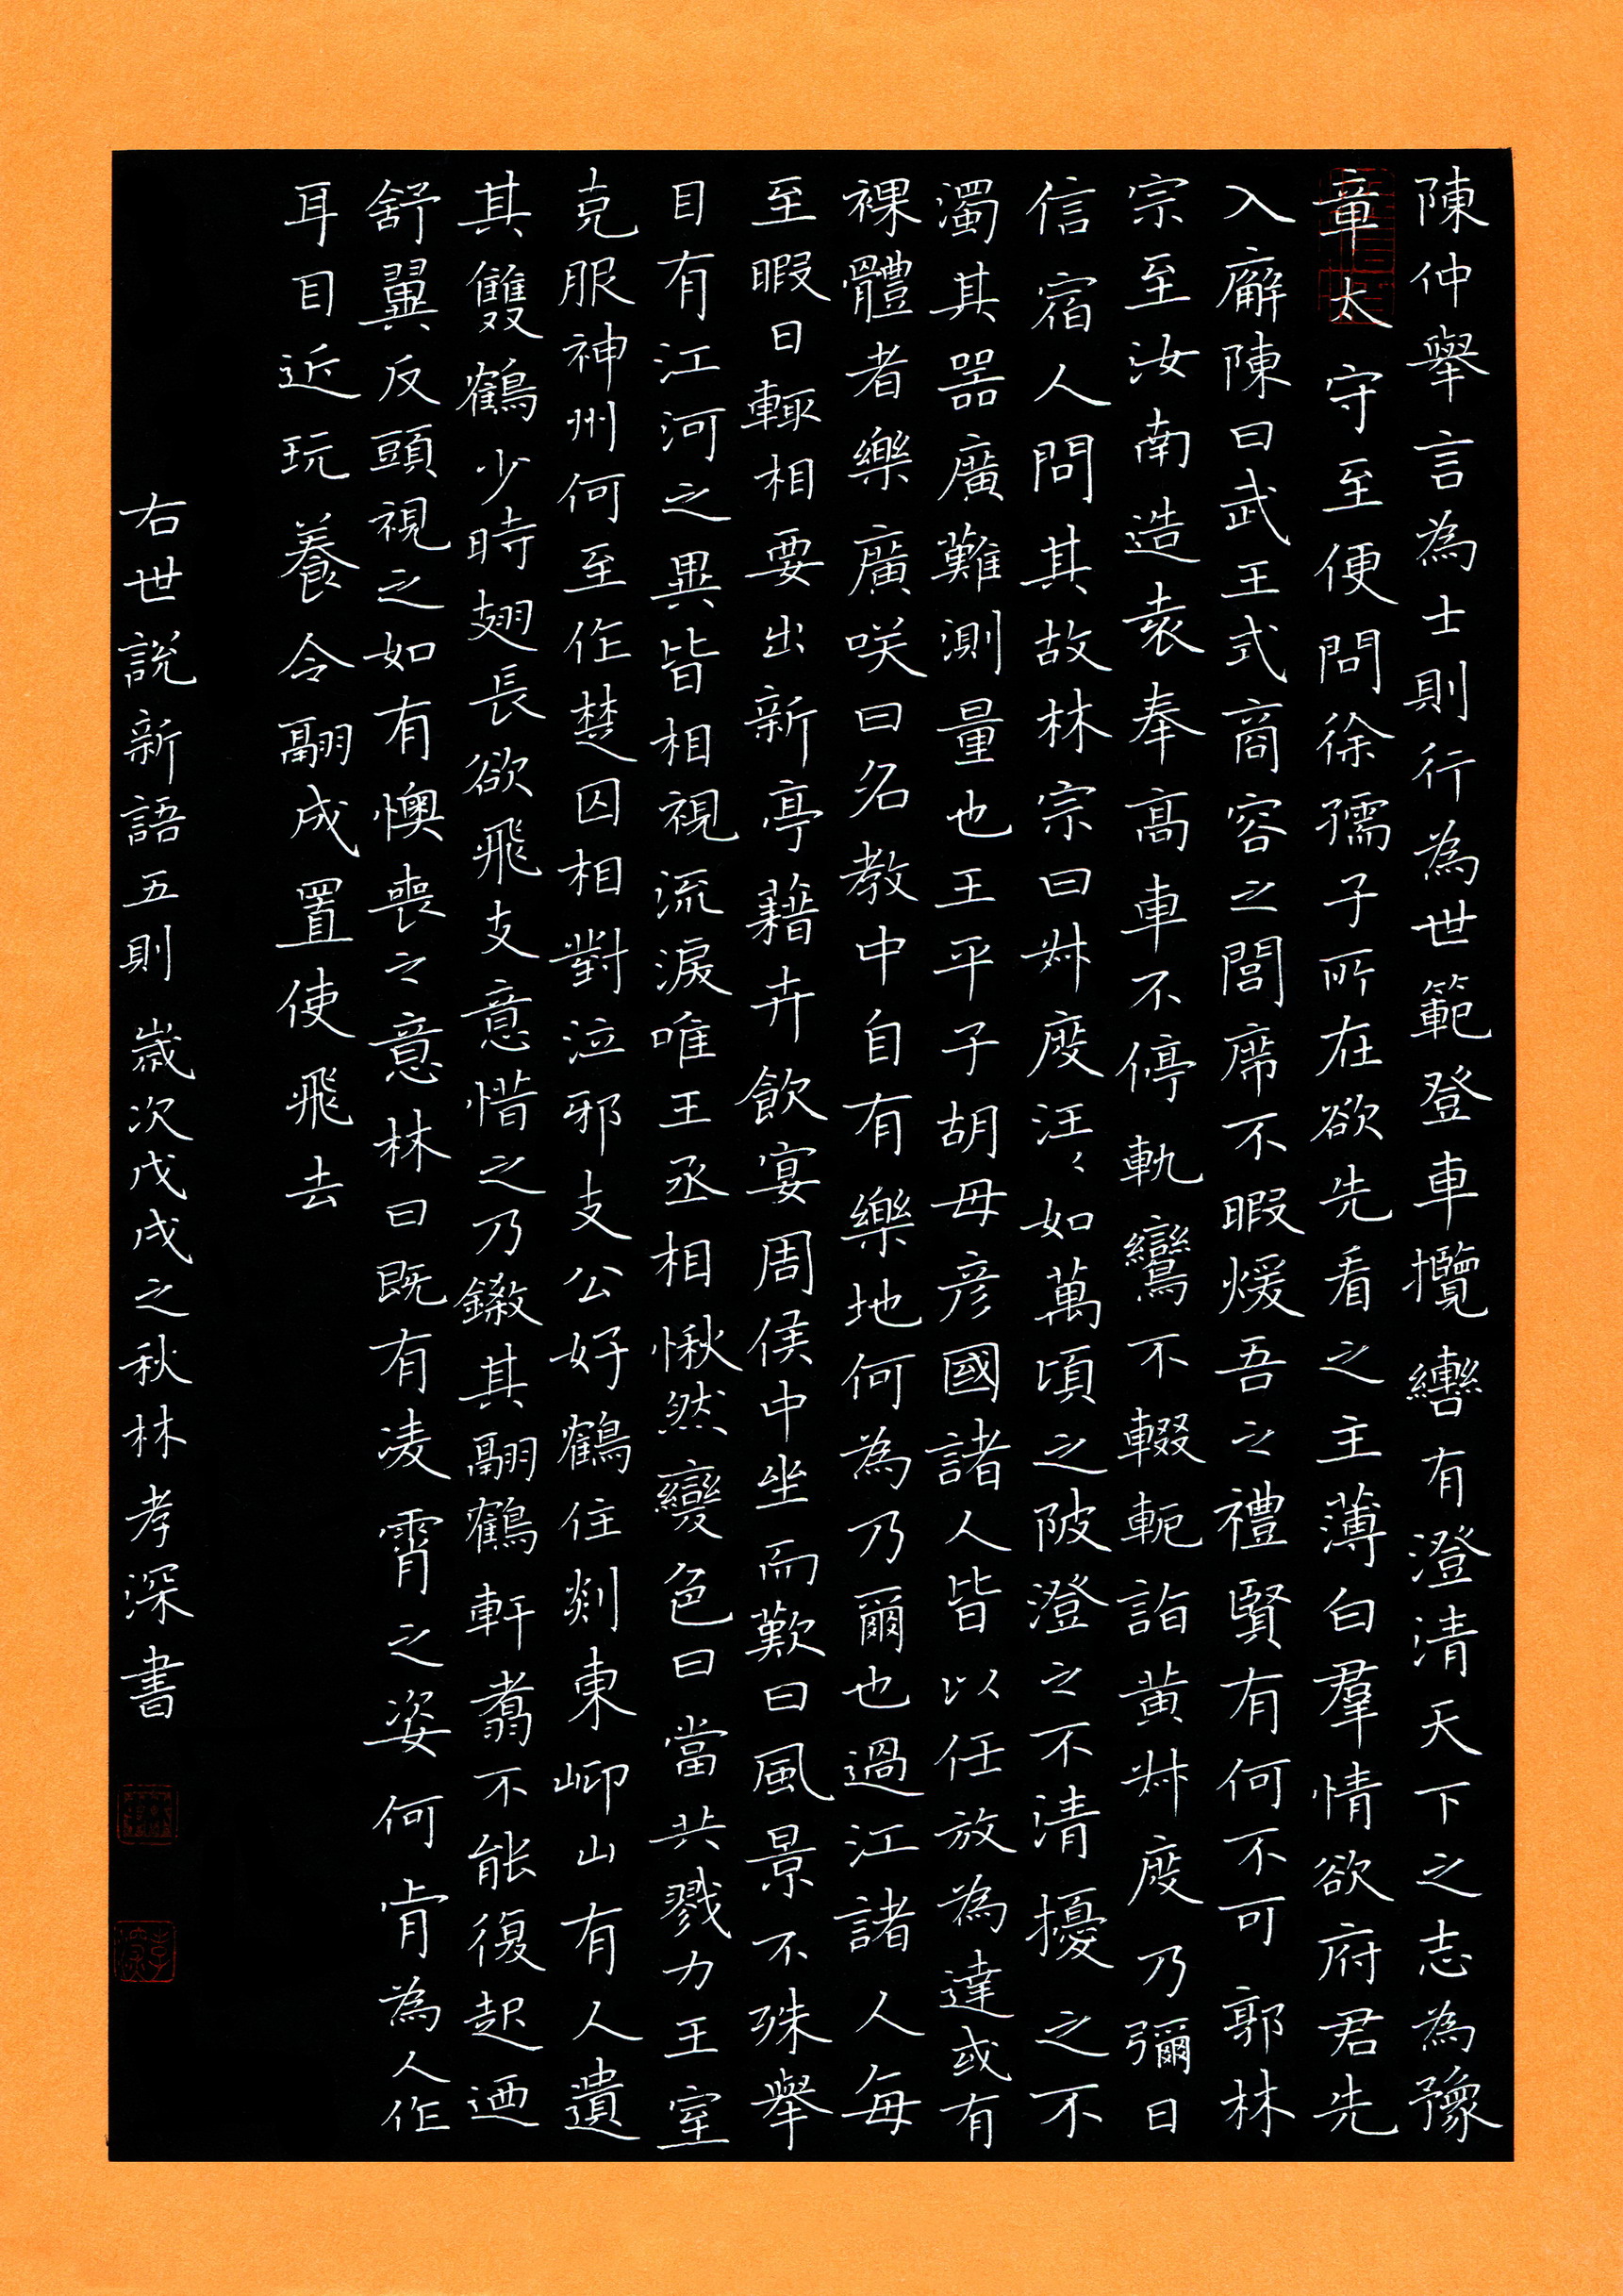 陳仲舉言為士則行為世範登車攬轡有澄清天下之志為豫
章太守至便問徐孺子所在欲先看之主薄白羣情欲府君先
入廨陳曰武王式商容之閭席不暇煖吾之禮賢有何不可郭林
宗至汝南造袁奉高車不停軌鸞不輟軛詣黃叔度乃彌日
信宿人問其故林宗曰叔度汪々如萬頃之陂澄之不清擾之不
濁其器廣難測量也王平子胡毋彥國諸人皆以任放為達或有
裸體者樂廣咲曰名教中自有樂地何為乃爾也過江諸人每
至暇日輒相要出新亭藉卉飲宴周侯中坐而歎曰風景不殊舉
目有江河之異皆相視流淚唯王丞相愀然變色曰當共戮力王室
克服神州何至作楚囚相對泣邪支公好鶴住剡東岇山有人遺
其雙鶴少時翅長欲飛支意惜之乃鎩其翮鶴軒翥不能復起迺
舒翼反頭視之如有懊喪之意林曰既有凌霄之姿何肯為人作
耳目近玩養令翮成置使飛去
右世說新語五則 歲次戊戌之秋林孝深書
林
孝深